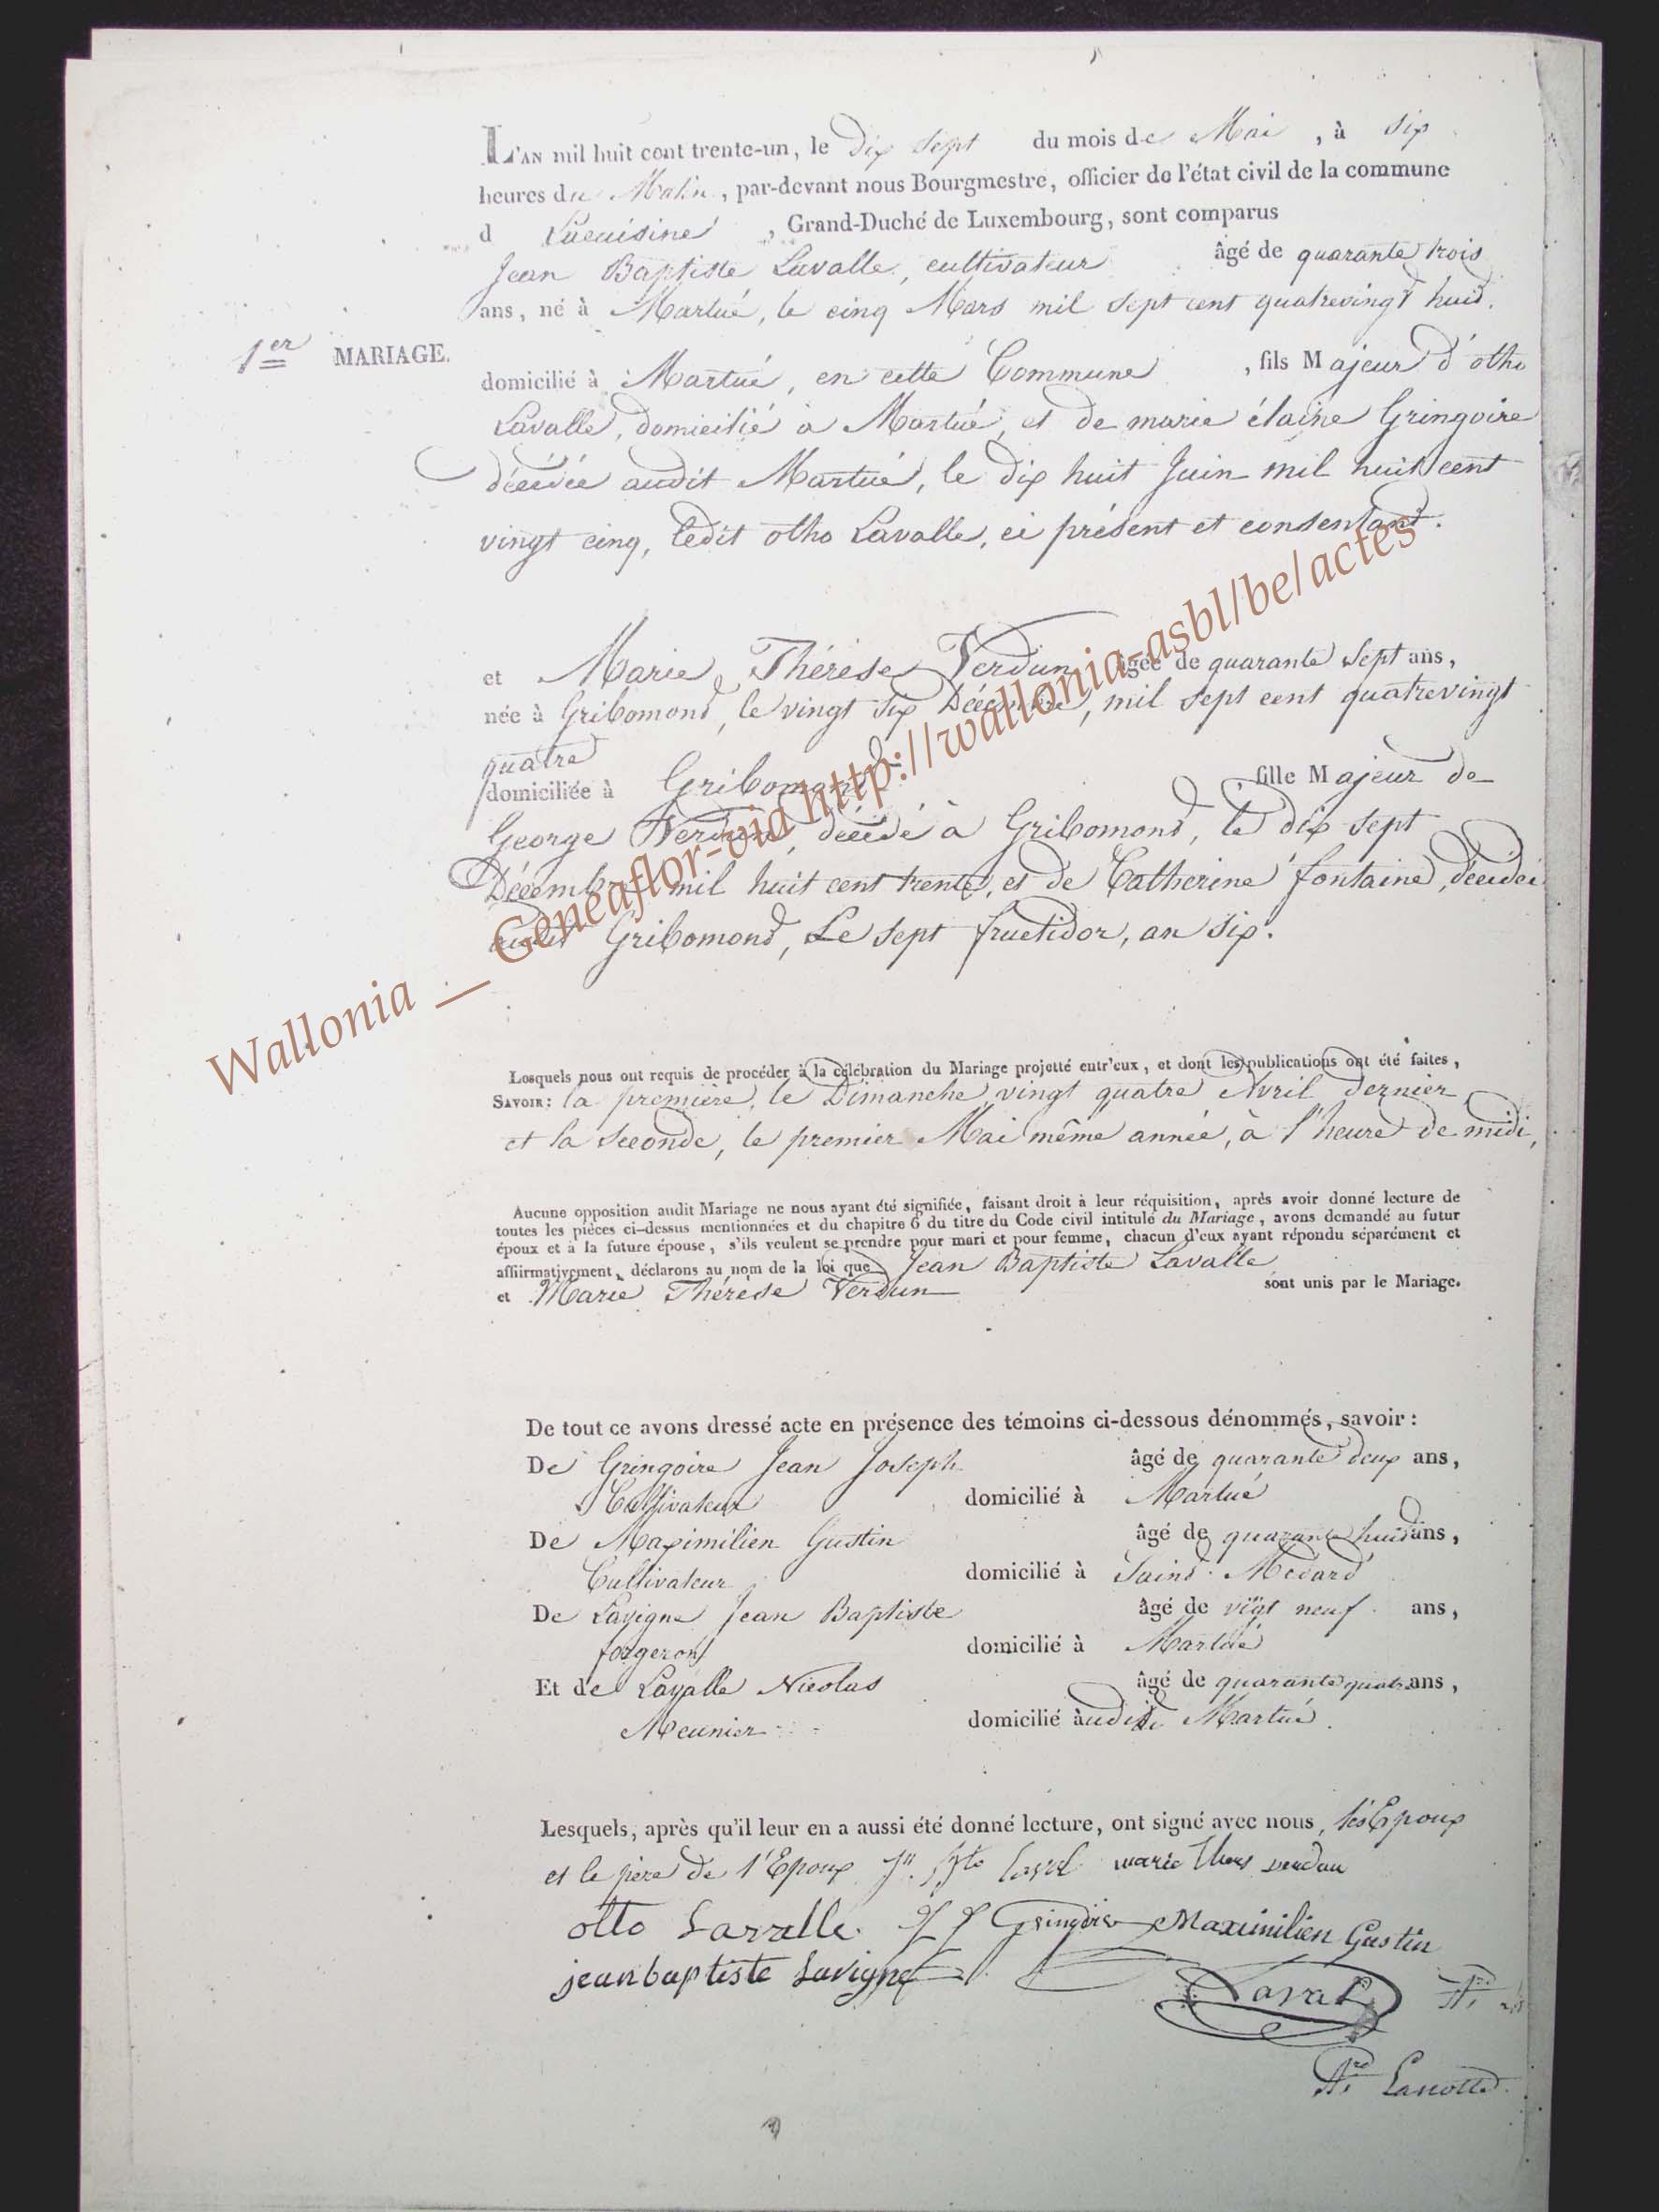 L'AN mil huit cent trente-un, le dix sept du mois de Mai, à six
heures du Matin, par-devant nous Bourgmestre, officier de l'état civil de la commune
d Lacuisine, Grand-Duché de Luxembourg, sont comparus
Jean Baptiste Lavalle, cultivateur âgé de quarante trois
ans, né à Martué, le cinq Mars mil sept cent quatrevingt huit.
1er MARIAGE.
domicilié à Martué, en cette Commune, fils Majeur d'otho
Lavalle, domicilié à Martué, et de marie élaine Gringoire
décédée audit Martué, le dix huit Juin mil huit cent
vingt cinq, ledit otho Lavalle, ci présent et consentant.
et Marie Thérèse Verdun âgée de quarante sept ans,
née à Gribomont, le vingt six Décembre, mil sept cent quatrevingt
quatre
domiciliée à Gribomont fille Majeur de
George Verdun, décédé à Gribomont, le dix sept
Décembre mil huit cent trente, et de Catherine fontaine, décédée
audit Gribomont, Le sept fructidor, an six.
Wallonia __ Geneaflor-via http://wallonia-asbl/be/actes
Lesquels nous ont requis de procéder à la célébration du Mariage projetté entr'eux, et dont les publications ont été faites,
SAVOIR: la première, le Dimanche vingt quatre Avril dernier
et la seconde, le premier Mai même année, à l'heure de midi,
Aucune opposition audit Mariage ne nous ayant été signifiée, faisant droit à leur réquisition, après avoir donné lecture de
toutes les pièces ci-dessus mentionnées et du chapitre 6 du titre du Code civil intitulé du Mariage, avons demandé au futur
époux et à la future épouse, s'ils veulent se prendre pour mari et pour femme, chacun d'eux ayant répondu séparément et
affirmativement, déclarons au nom de la loi que Jean Baptiste Lavalle
et Marie Thérèse Verdun sont unis par le Mariage.
De tout ce avons dressé acte en présence des témoins ci-dessous dénommés, savoir:
De Gringoire Jean Joseph âgé de quarante deux ans,
Cultivateur domicilié à Martué
De Maximilien Gustin âgé de quarante huit ans,
Cultivateur domicilié à Saint Médard
De Lavigne Jean Baptiste âgé de vigt neuf ans,
forgeron domicilié à Martué
Et de Lavalle Nicolas âgé de quarante quatre ans,
Meunier domicilié audit Martué.
Lesquels, après qu'il leur en a aussi été donné lecture, ont signé avec nous, les Epoux
et le père de l'Epoux Jn. Bte laval marie theres verdun
otto Lavalle. J J Gringoire Maximilien Gustin
jean baptiste Lavigne
Laval
Lanotte